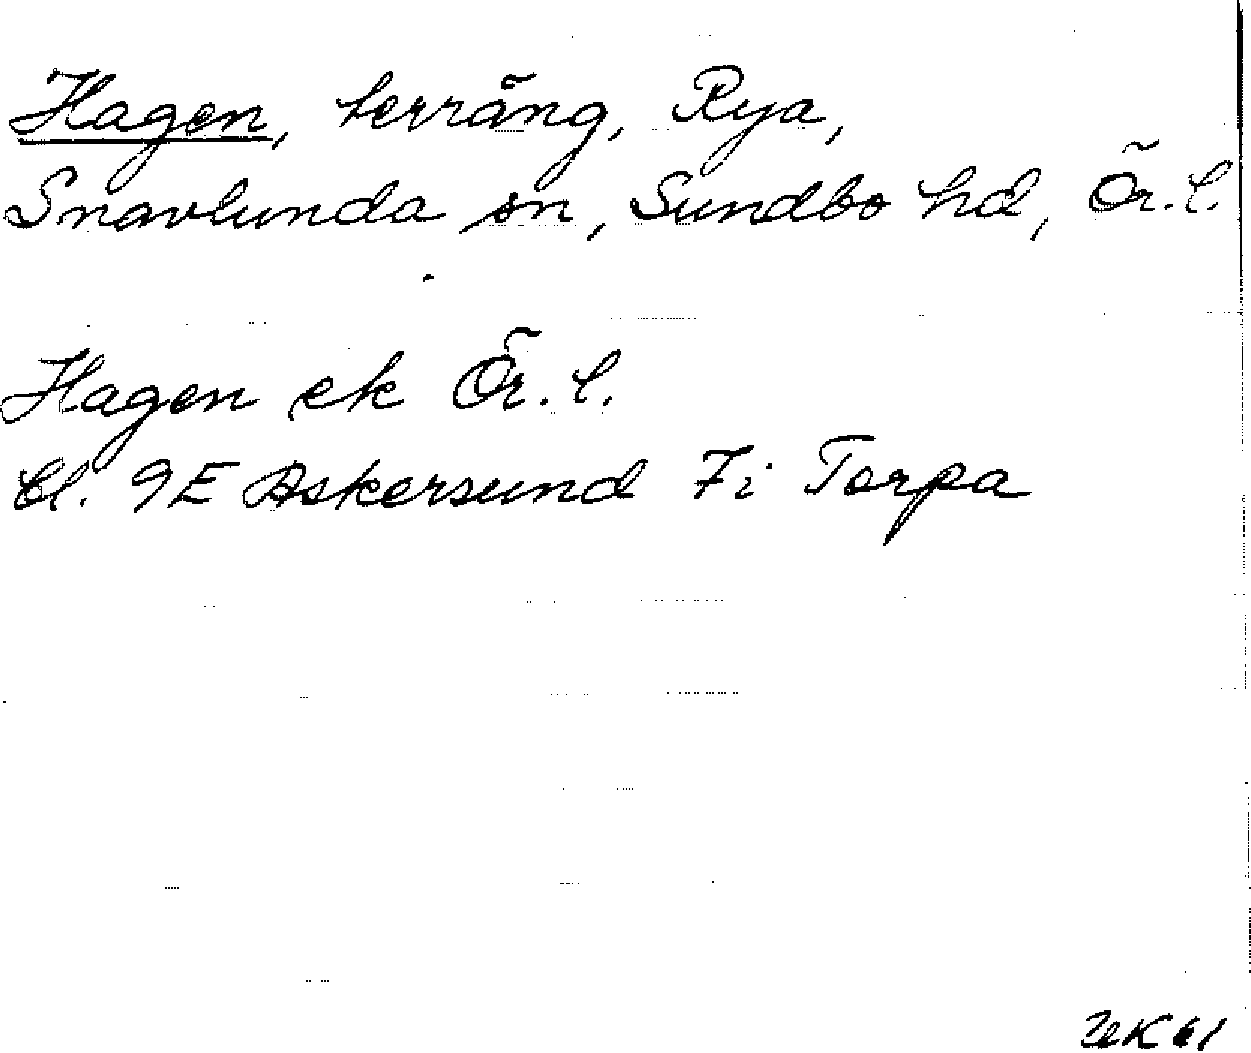 Hagen, terräng, Rya,
Snavlunda sn, Sundbo hd, Ör. l.
Hagen ek Ör. l.
bl. 9E Askersund 7i Torpa